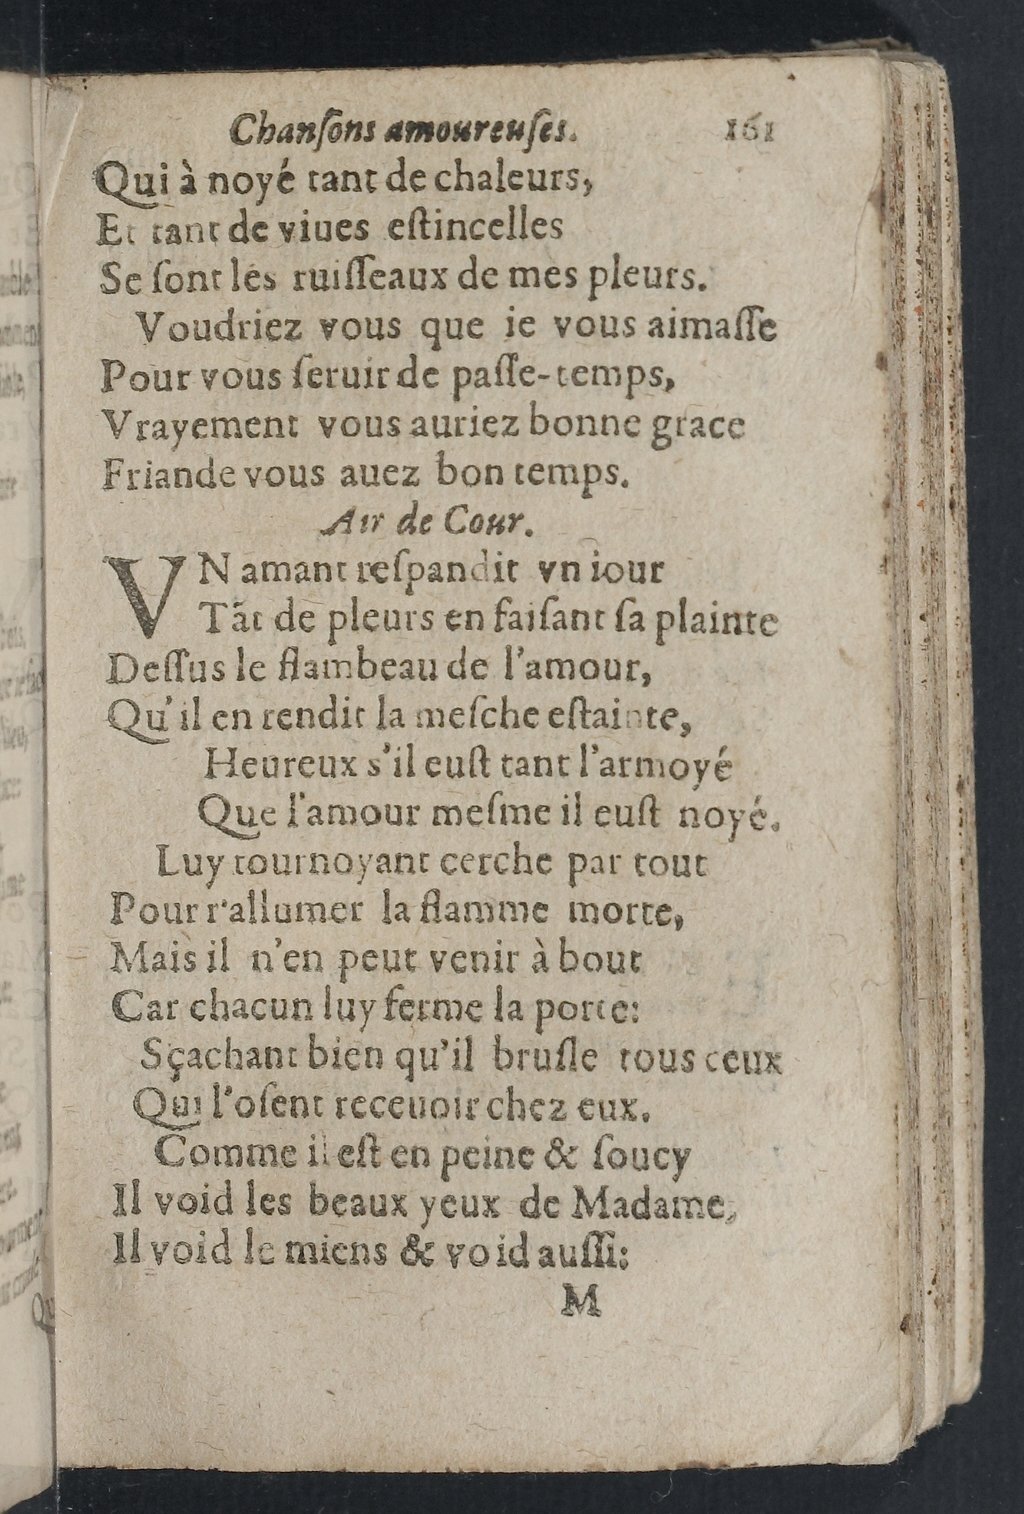 Chanſons amoureuſes. 161
Qui à noyé tant de chaleurs,
Et tant de viues eſtincelles
Se ſont lés ruiſſeaux de mes pleurs.
Voudriez vous que ie vous aimaſſe
Pour vous ſeruir de paſſe-temps,
Vrayement vous auriez bonne grace
Friande vous auez bon temps.
Air de Cour.
VN amant reſpandit vn iour
Tãt de pleurs en faiſant ſa plainte
Deſſus le flambeau de l'amour,
Qu'il en rendit la meſche eſtainte,
Heureux s'il euſt tant l'armoyé
Que l'amour meſme il euſt noyé.
Luy tournoyant cerche par tout
Pour r'allumer la flamme morte,
Mais il n'en peut venir à bout
Car chacun luy ferme la porte:
Sçachant bien qu'il bruſle tous ceux
Qui l'oſent receuoir chez eux.
Comme il eſt en peine & ſoucy
Il void les beaux yeux de Madame,
Il void le miens & void auſſi:
M